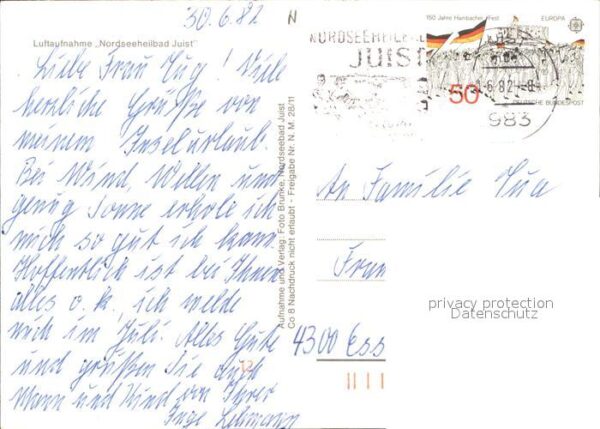 30.6.82
N
Luftaufnahme „Nordseeheilbad Juist"
Liebe Frau Zug! Viele
herzliche Grüße von
meinem Inselurlaub.
Bei Wind, Wellen und
genug Sonne erhole ich
mich so gut ich kann.
Hoffentlich ist bei Ihnen
alles o.k., ich melde
mich im Juli. Alles Gute
und grüßen Sie auch
Mann und Kind von Ihrer
Inge Lehmann
12
Aufnahme und Verlag: Foto Brunke, Nordseebad Juist
Co 8 Nachdruck nicht erlaubt - Freigabe Nr. N. M. 28/11
NORDSEEHEILB
JUIST
150 Jahre Hambacher Fest
EUROPA
6.82
50
DEUTSCHE BUNDESPOST
983
An Familie
Fran
4300 Ess
privacy protection
Datenschutz